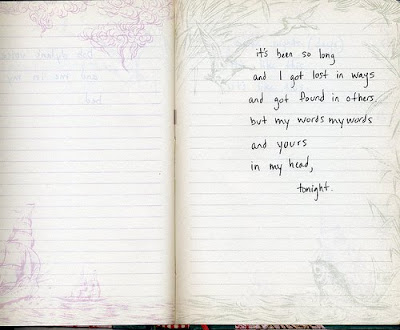 it's been so long
and I got lost in ways
and got found in others
but my words my words
and yours
in my head,
tonight.